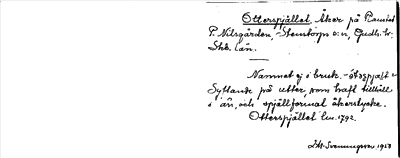 Otterspjället. Åker på Ramstorp
P. Nilsgården, Stenstorps s:n, Gudh. hd.
Skb. län.
Namnet ej i bruk.
Syftande på utter, som haft tillhåll
i ån, och spjällformat åkerstycke.
Otterspjället Lm. 1792.
Svenningsson 1953